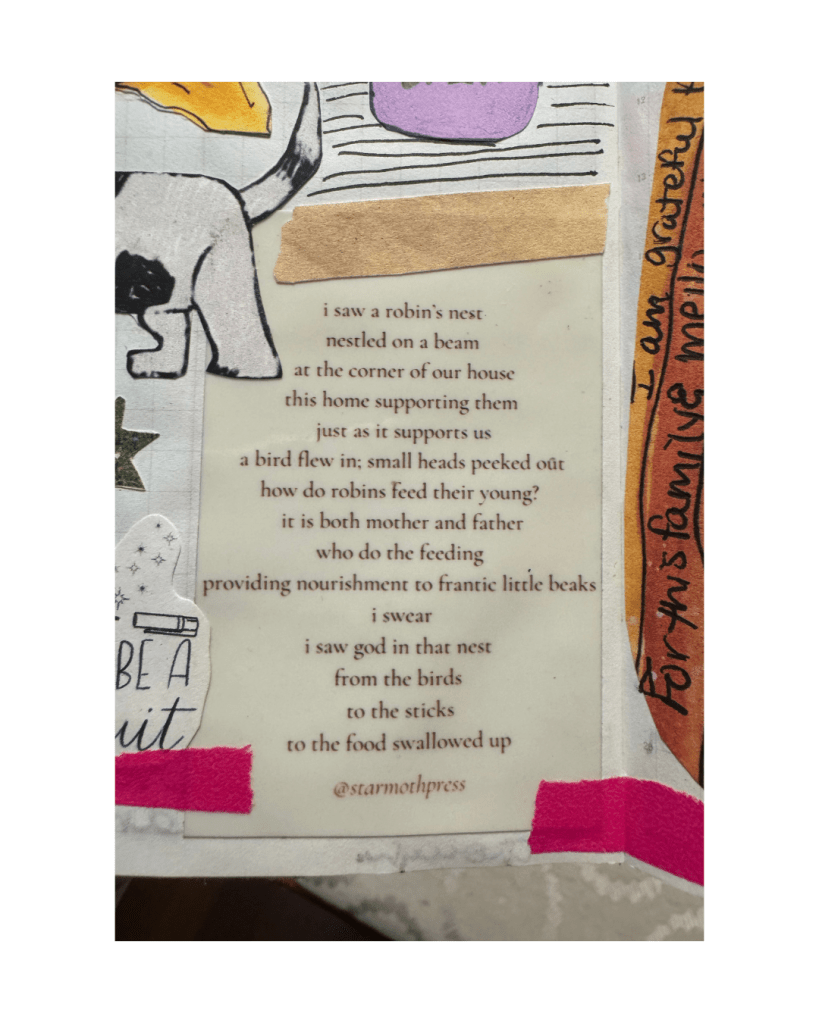 i saw a robin's nest
nestled on a beam
at the corner of our house
this home supporting them
just as it supports us
a bird flew in; small heads peeked out
how do robins feed their young?
it is both mother and father
who do the feeding
providing nourishment to frantic little beaks
i swear
i saw god in that nest
from the birds
to the sticks
to the food swallowed up
@starmothpress
BE A
uit
I am grateful
For this family &
12
13